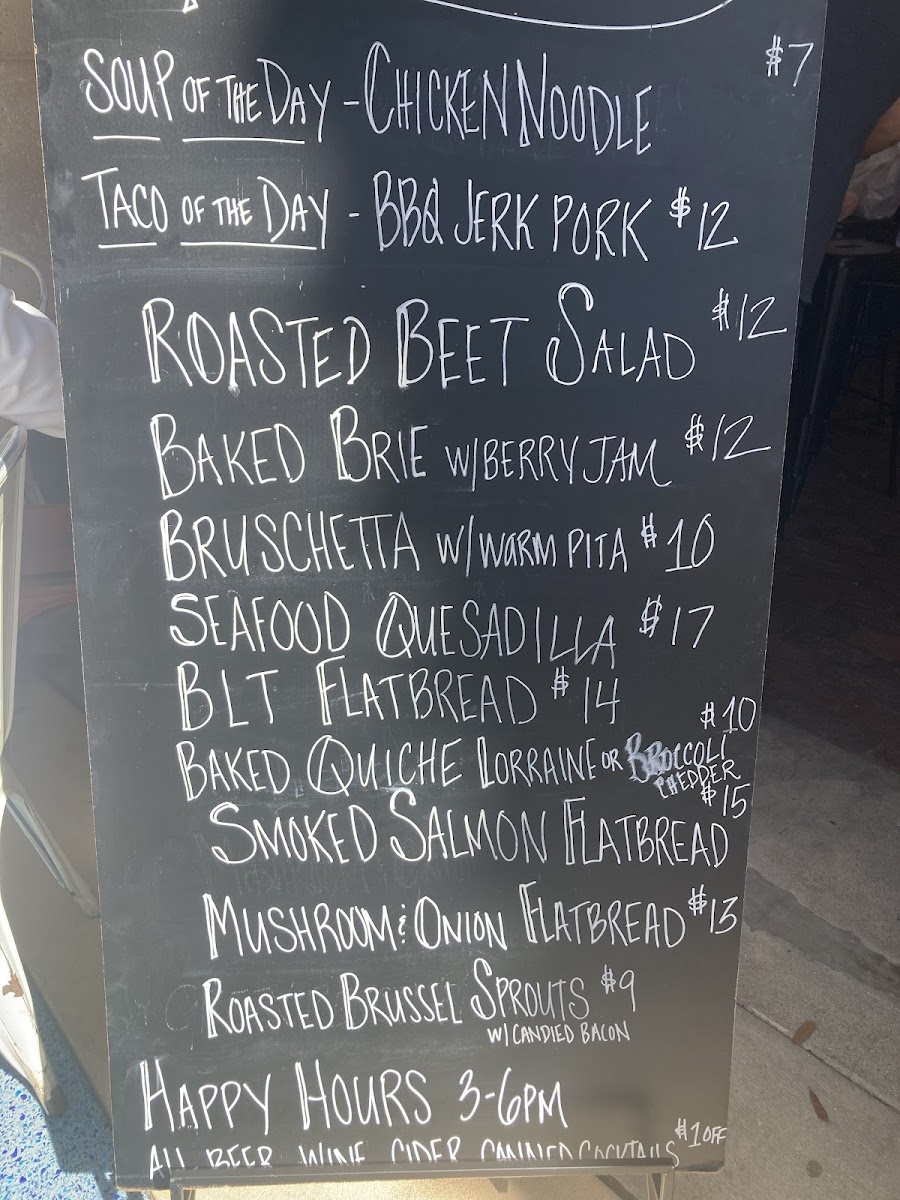 SOUP OF THE DAY - CHICKEN NOODLE $7
TACO OF THE DAY - BBQ JERK PORK $12
ROASTED BEET SALAD $12
BAKED BRIE W/BERRY JAM $12
BRUSCHETTA W/WARM PITA $10
SEAFOOD QUESADILLA $17
BLT FLATBREAD $14
$10
BAKED QUICHE LORRAINE OR BROCCOLI
CHEDDER
$15
SMOKED SALMON FLATBREAD
MUSHROOM & ONION FLATBREAD $13
ROASTED BRUSSEL SPROUTS $9
W/CANDIED BACON
HAPPY HOURS 3-6PM
ALL BEER WINE CIDER CANNED COCKTAILS $1 OFF